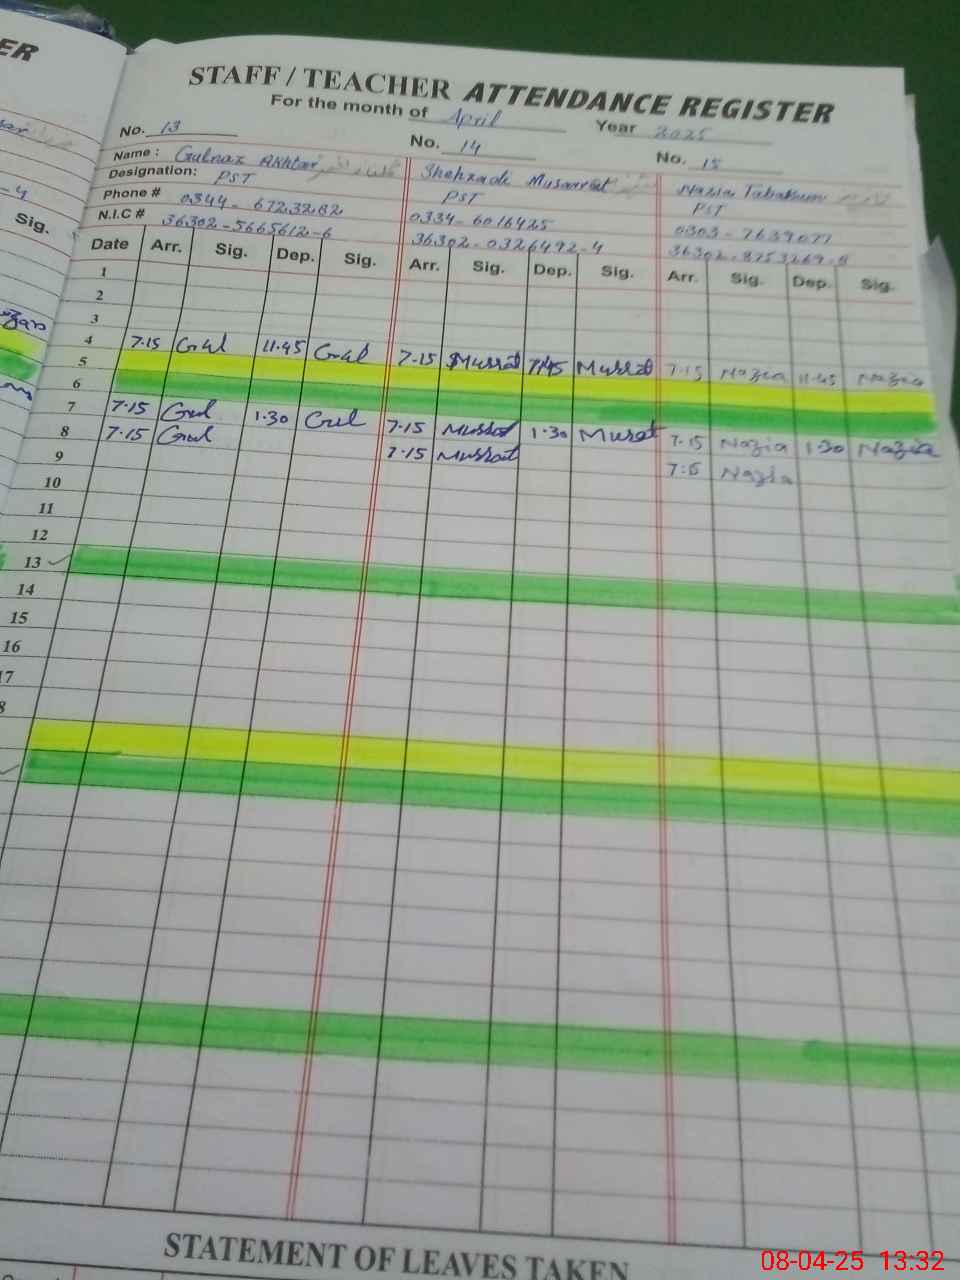 ER
STAFF / TEACHER ATTENDANCE REGISTER
For the month of April Year 2025
No. 13 No. 14 No. 15
Name : Gulnaz Akhtar Shehzadi Musarrat Nazia Tabassum
Designation: PST PST PST
Phone # 0344-6723282 0334-6016425 0303-7639077
N.I.C # 36302-5665612-6 36302-0326492-4 36302-8753269-8
- 4
Sig.
Date Arr. Sig. Dep. Sig. Arr. Sig. Dep. Sig. Arr. Sig. Dep. Sig.
1
2
3
4 7.15 Gul 11.45 Gul 7.15 Mussrat 11.45 Mussrat 7.15 Nazia 11.45 Nazia
5
6
7 7.15 Gul 1.30 Gul 7.15 Mussrat 1.30 Musrat 7.15 Nazia 1.30 Nazia
8 7.15 Gul 7.15 Mussrat 7:15 Nazia
9
10
11
12
13
14
15
16
17
8
STATEMENT OF LEAVES TAKEN
08-04-25 13:32